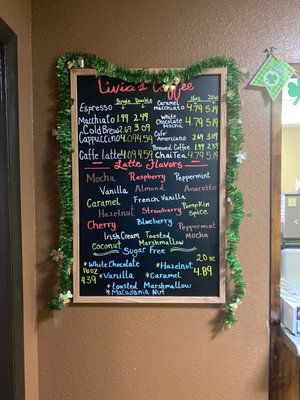 Livia's Coffee
Single Double
Espresso 1.99 2.49
Macchiato 1.99 2.49
Cold Brew 2.69 3.09
Cappuccino 4.09 4.59
Caffe latte 4.09 4.59
16oz 20oz
Caramel Macchiato 4.79 5.19
White Chocolate Mocha 4.79 5.19
Cafe' Americano 2.69 3.09
Brewed Coffee 1.99 2.39
Chai Tea 4.79 5.19
Latte Flavors
Mocha Raspberry Peppermint
Vanilla Almond Amaretto
Caramel French Vanilla
Hazelnut Strawberry Pumpkin Spice
Cherry Blueberry
Irish Cream Toasted Marshmallow Peppermint Mocha
Coconut
Sugar Free
*White Chocolate *Hazelnut
16oz 4.39 *Vanilla *Caramel 20oz 4.89
*toasted Marshmallow
*Macadamia Nut